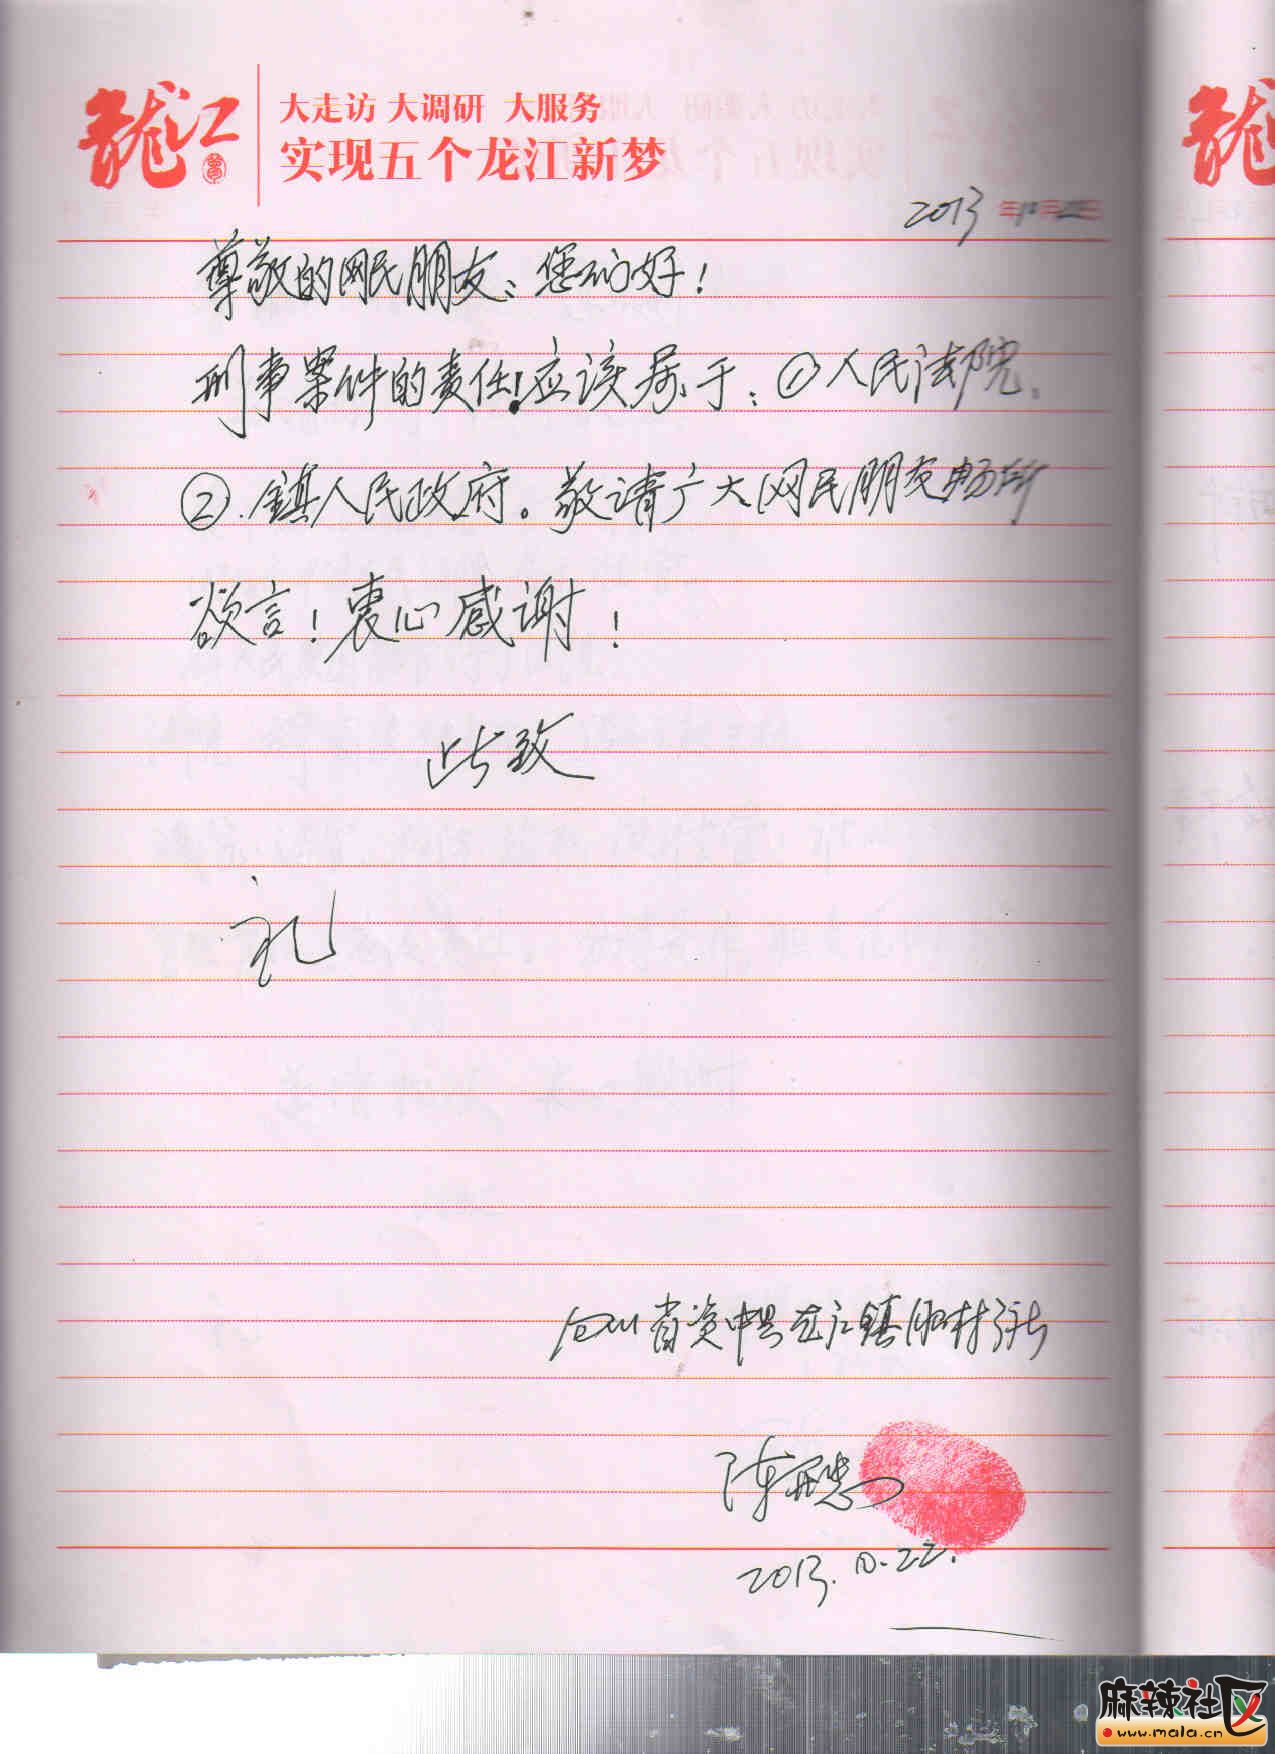 龙江
大走访 大调研 大服务
实现五个龙江新梦
2013年10月22日
尊敬的网民朋友、您们好！
刑事案件的责任！应该属于：①人民法院。
②.镇人民政府。敬请广大网民朋友畅所
欲言！衷心感谢！
此致
礼
四川省资中县龙江镇
陈
2013.10.22.
麻辣社区
www.mala.cn